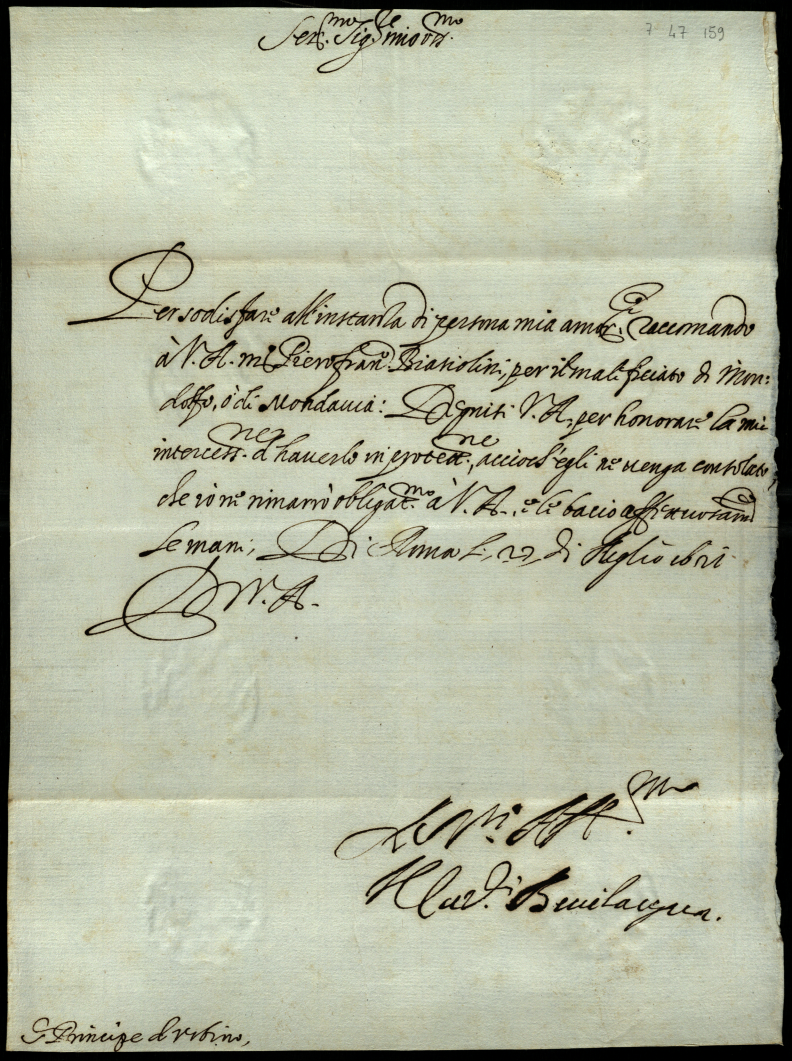 Ser.mo Sig.re mio oss.mo
7 47 159
Per sodisfar.e all'instanza di persona mia amor.le raccomando
à V. A. m. Pierofran.o, per il mal.ficiato di Mon:
dolfo, ò di Mondavia: Degnisi V. A. per honorar.e la mia
intercess.ne d'haverlo in protett.ne, accioch'egli n.e venga consolato,
che io ne rimarrò obligat.mo à V. A., e le bacio affettuosam.te
le mani; Di Roma li, 27, di luglio 1621
D V. A.
Aff.mo
Il Card.l Bevilacqua.
S. Principe d'Urbino,